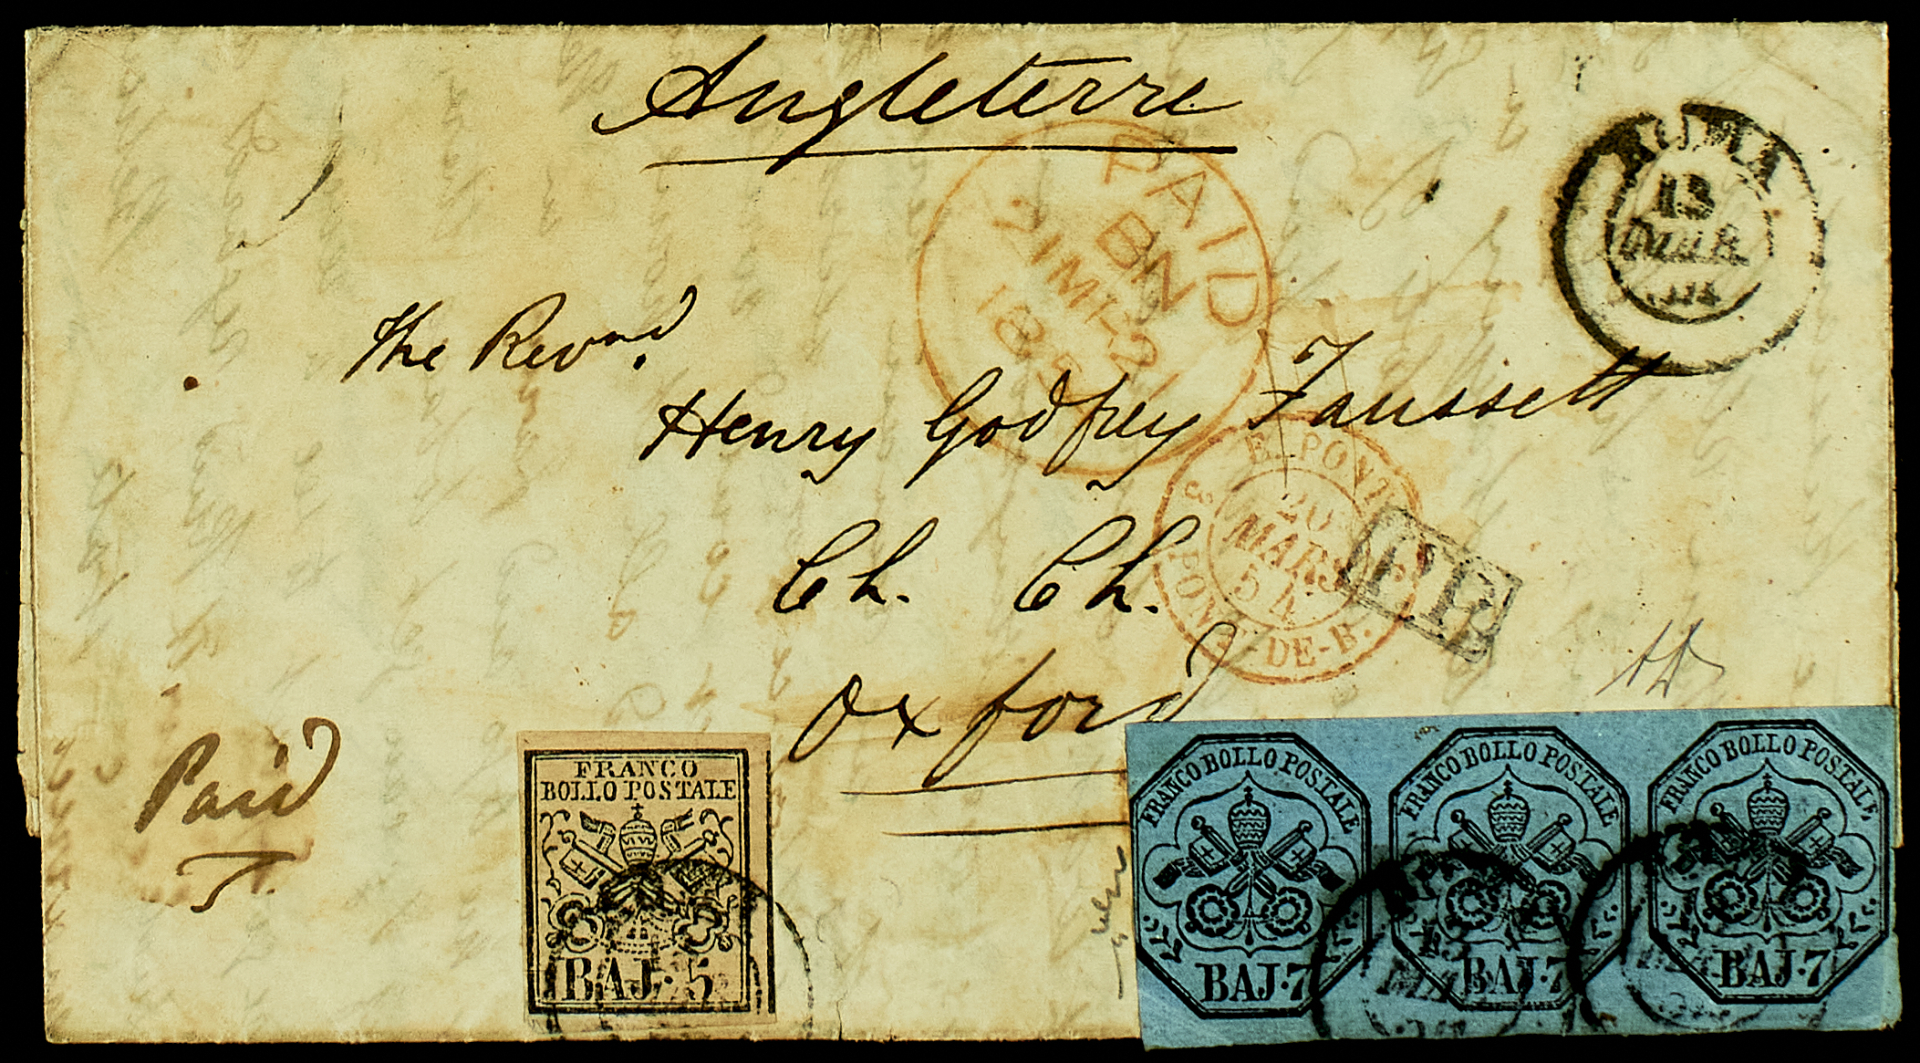 Angleterre
PAID
BN
21 MR 2
185
ROMA
13
The Revnd.
Henry Godfrey Faussett
E. PONT
8
20
MARS
54
PONT-DE-B.
P.P.
Ch. Ch.
Oxford
Paid
FRANCO
BOLLO POSTALE
BAJ. 5
FRANCO BOLLO POSTALE
BAJ. 7
FRANCO BOLLO POSTALE
BAJ. 7
FRANCO BOLLO POSTALE
BAJ. 7